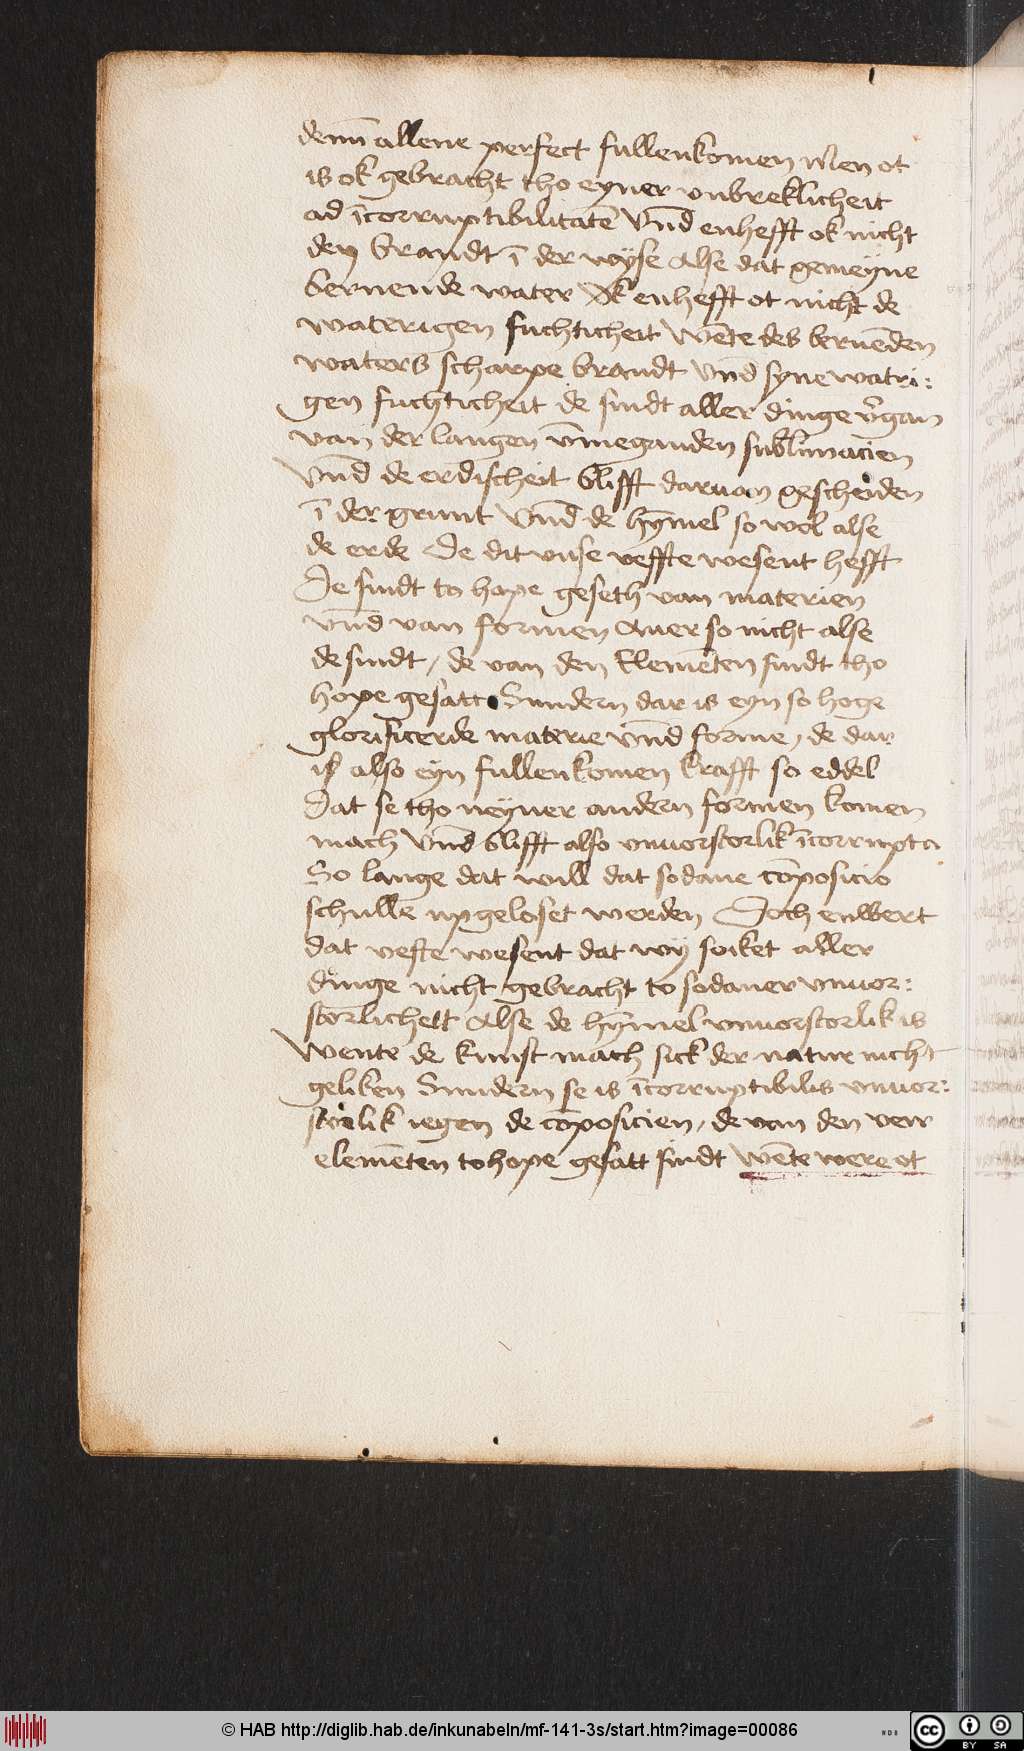 deñn allene perfect fullenkomen Men ot
is ok gebracht tho eyner vnbreklicheit
ad īcorruptibilitatē vñd enhefft ok nicht
den brandt ī der wyse Alse dat gemeyne
bernende water Ok enhefft ot nicht de
waterigen fuchticheit wēte des bernēden
waters scharpe brandt vñd syne watri:
gen fuchticheit de sindt aller dinge v̄gan
van der langen v̄megandensublimacien
vñd de erdischeit blifft daruan gescheiden
ī der grunt vñd de hȳmel so wol alse
de erde De dit vnse veffte wesent hefft
De sindt to hope geseth van materien
vñd van formen Auer so nicht alse
de sindt / de van den Elemēten sindt tho
hope gesatt Sundern dar is eyn so hoge
glorificerde materie vñd forme / de dar
is also eyn fullenkomen krafft so eddel
Dat se tho neyner andern formen komen
mach vñd blifft also vnuorstorlik īcorrupta
So lange dat will dat sodane cōposicio
schullē upgeloset werden Doch enwert
dat vefte wesent dat wy soiket aller
dinge nicht gebracht to sodaner vnuor:
storlichett Alse de hȳmel vnuorstorlik is
Wente de kunst mach sick der natur nicht
geliken Sundern se is īcorruptibilis vnuor:
storlik iegen de cōposicien / de van den veir
elemēten tohope gesatt sindt wēte were ot
© HAB http://diglib.hab.de/inkunabeln/mf-141-3s/start.htm?image=00086
WDB
cc BY SA